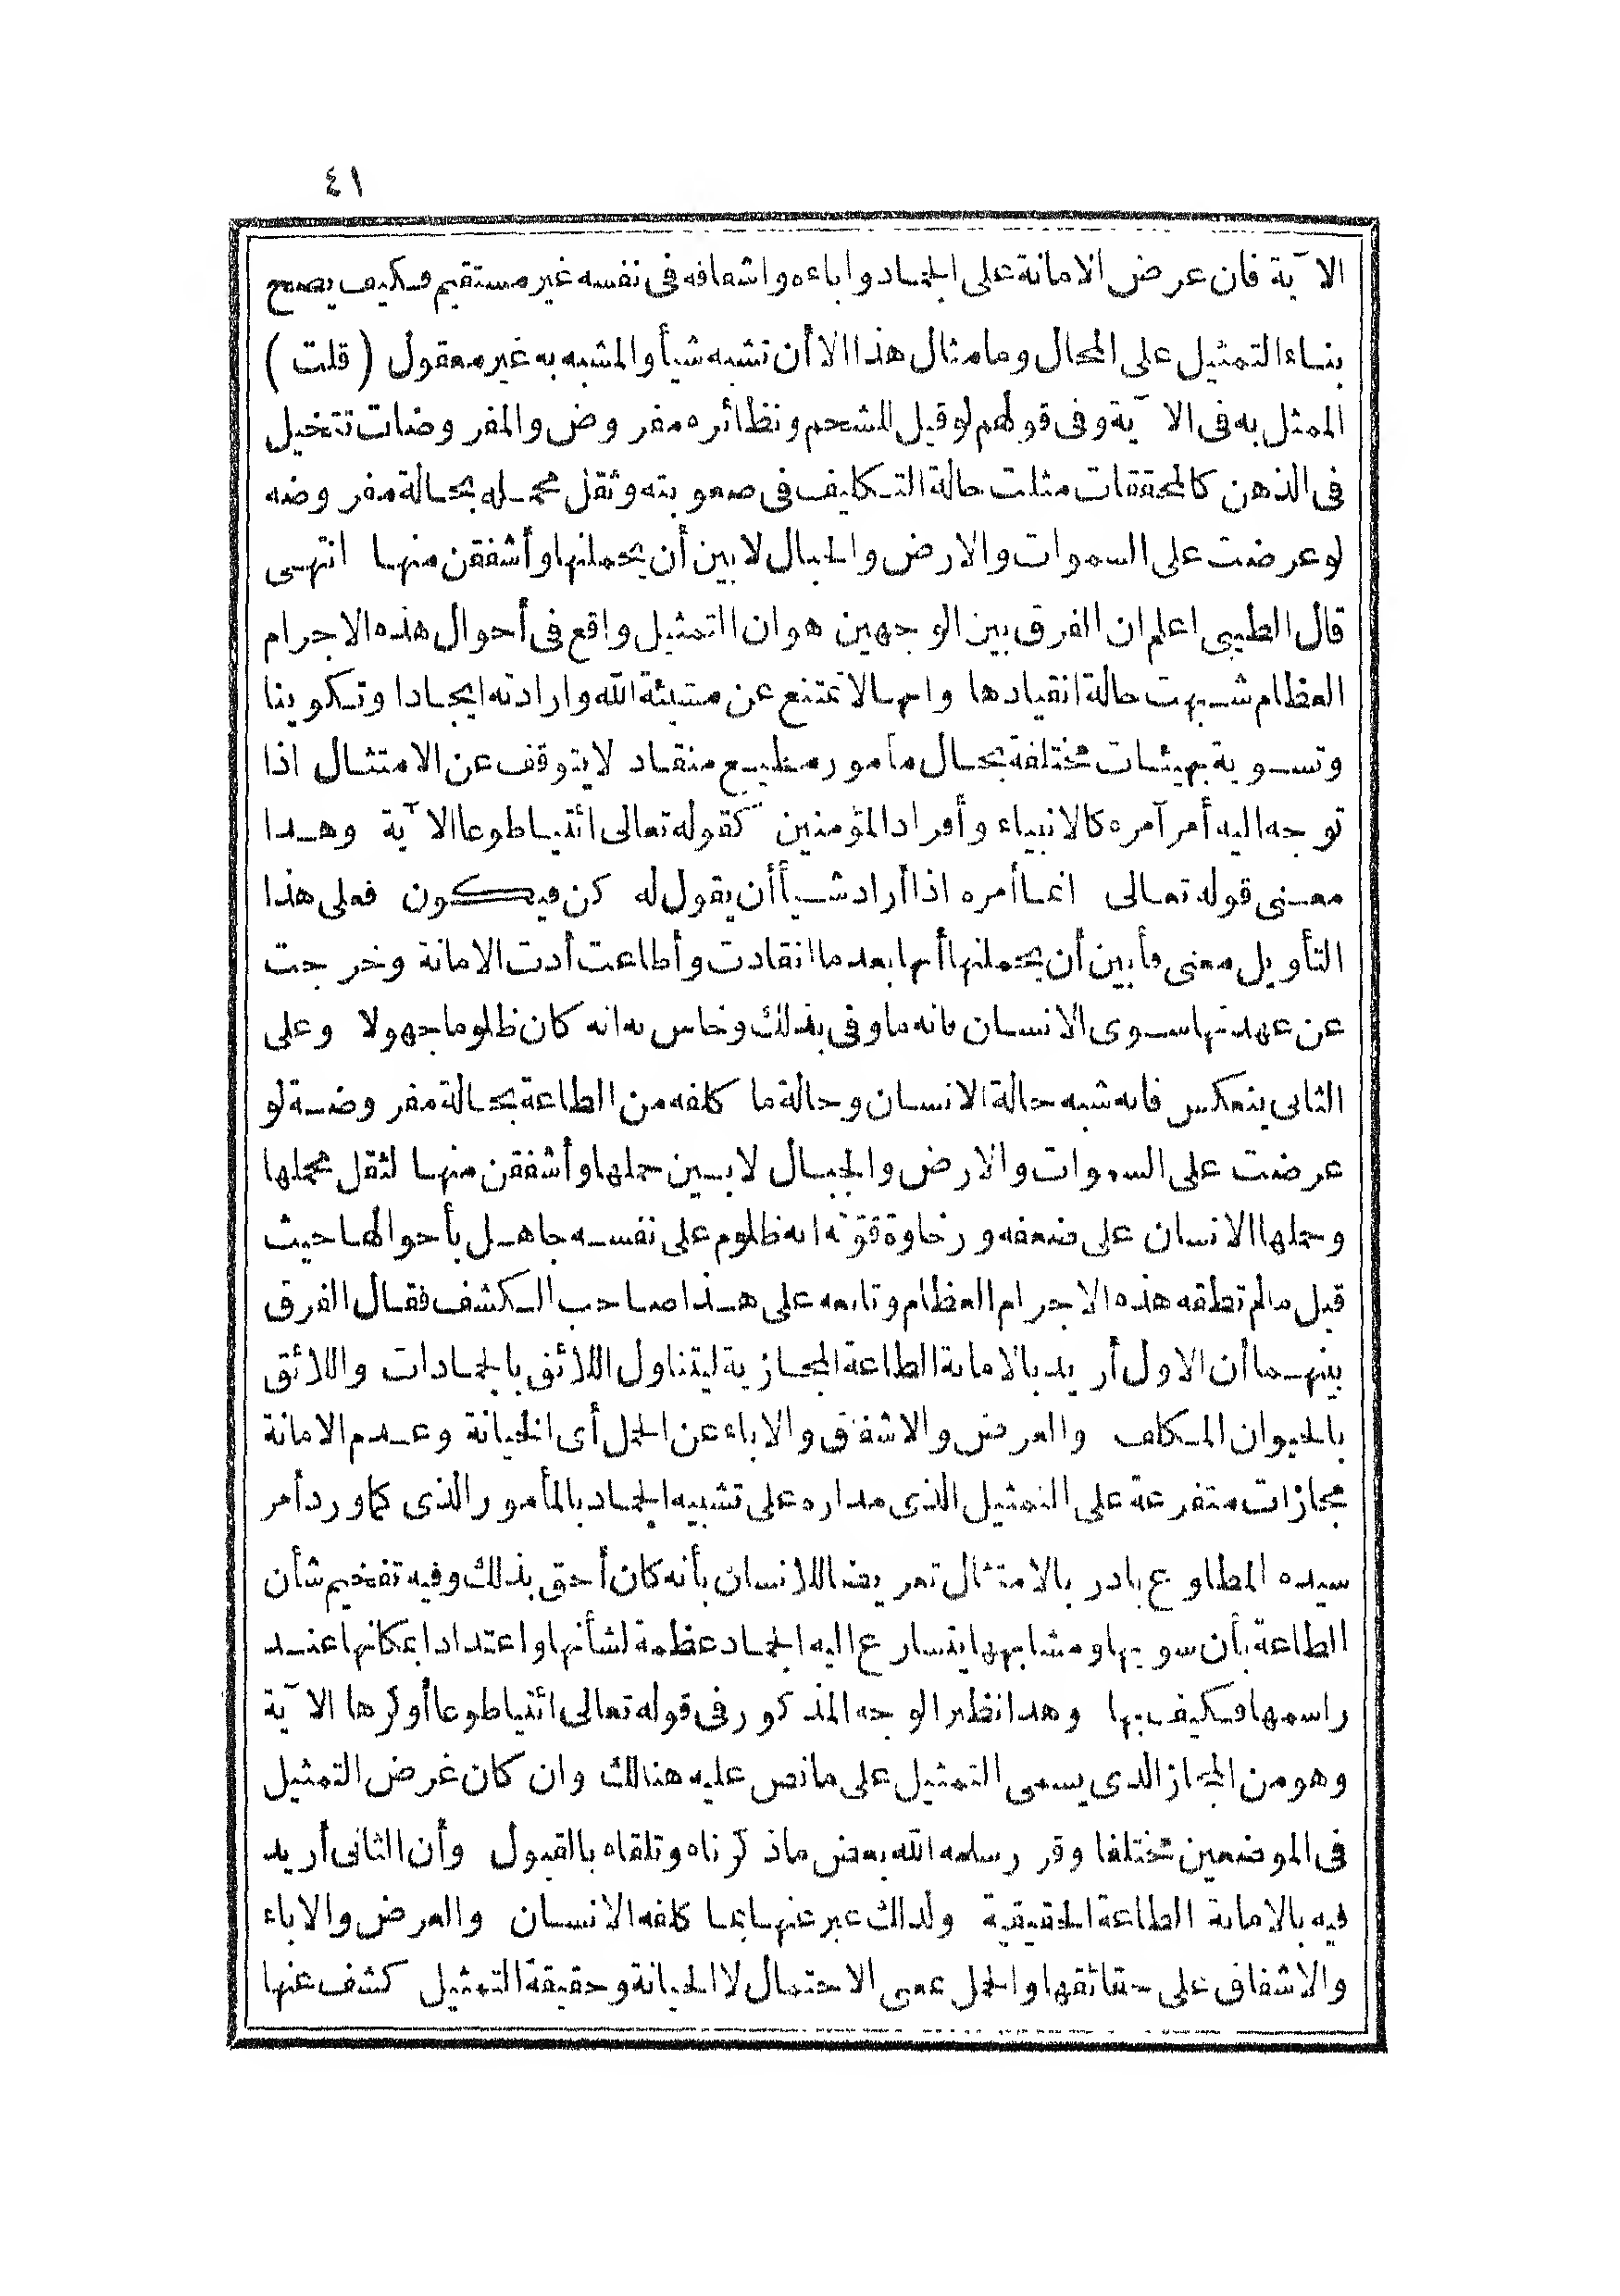 ٤١
الآية فان عرض الامانة على الجماد واباءه واشفاقه فى نفسه غير مستقيم فكيف يصح
بناء التمثيل على المحال وما مثال هذا الا أن تشبه شيأ والمشبه به غير معقول (قلت)
الممثل به فى الآية وفى قولهم لو قيل للشحم ونظائره مفروض والمفروضات تتخيل
فى الذهن كالمحققات مثلت حالة التكليف فى صعوبته وثقل محمله بحالة مفروضه
لو عرضت على السموات والارض والجبال لابين أن يحملنها وأشفقن منها انتهى
قال الطيبى اعلم ان الفرق بين الوجهين هو ان التمثيل واقع فى أحوال هذه الاجرام
العظام شبهت حالة انقيادها وانها لا تمتنع عن مشيئة الله وارادته ايجادا وتكوينا
وتسوية بهيئات مختلفة بحال مأمور مطيع منقاد لا يتوقف عن الامتثال اذا
توجه اليه أمر آمره كالانبياء وأفراد المؤمنين كقوله تعالى ائتيا طوعا الآية وهذا
معنى قوله تعالى انما أمره اذا أراد شيأ أن يقول له كن فيكون فعلى هذا
التأويل معنى فأبين أن يحملنها أنها بعد ما انقادت وأطاعت أدت الامانة وخرجت
عن عهدتها سوى الانسان فانه ما وفى بذلك وخاس به انه كان ظلوما جهولا وعلى
الثانى ينعكس فانه شبه حالة الانسان وحالة ما كلفه من الطاعة بحالة مفروضة لو
عرضت على السموات والارض والجبال لابين حملها وأشفقن منها لثقل محملها
وحملها الانسان على ضعفه ورخاوة قوته انه ظلوم على نفسه جاهل بأحوالها حيث
قبل مالم تطقه هذه الاجرام العظام وتابعه على هذا صاحب الكشف فقال الفرق
بينهما أن الاول أريد بالامانة الطاعة المجازية ليتناول اللائق بالجمادات واللائق
بالحيوان المكلف والعرض والاشفاق والاباء عن الحمل أى الخيانة وعدم الامانة
مجازات متفرعة على التمثيل الذى مداره على تشبيه الجماد بالمأمور الذى كما ورد أمر
سيده المطاوع بادر بالامتثال تعريضا للانسان بأنه كان أحق بذلك وفيه تفخيم شأن
الطاعة بأن سويها ومشابهها يتسارع اليه الجماد عظمة لشأنها واعتدادا بمكانها عند
راسمها فكيف بها وهذا نظير الوجه المذكور فى قوله تعالى ائتيا طوعا أو كرها الآية
وهو من المجاز الذى يسمى التمثيل على ما نص عليه هنالك وان كان غرض التمثيل
فى الموضعين مختلفا وقرر سلمه الله بعض ماذكرناه وتلقاه بالقبول وأن الثانى أريد
فيه بالامانة الطاعة الحقيقية ولذلك عبر عنها بما كلفه الانسان والعرض والاباء
والاشفاق على حقائقها والحمل بمعنى الاحتمال لا الخيانة وحقيقة التمثيل كشف عنها